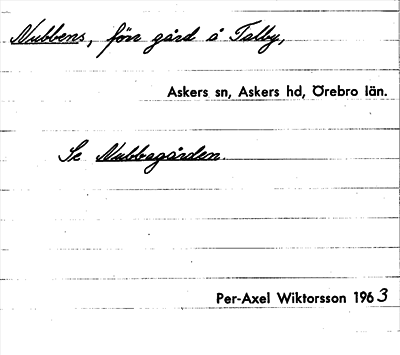 Nubbens, förr gård å Talby,
Askers sn, Askers hd, Örebro län.
Se Nubbagården.
Per-Axel Wiktorsson 1963